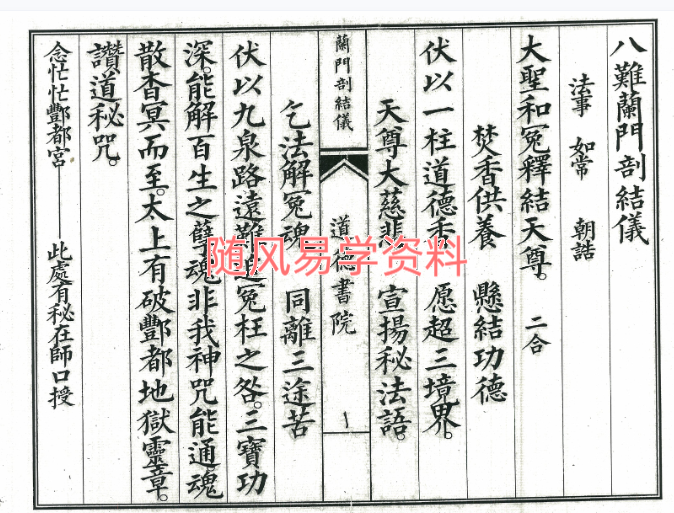 八難蘭門剖結儀
法事　如常　朝誥
大聖和冤釋結天尊。　二合
焚香供養　懸結功德
伏以一柱道德香　愿超三境界。
天尊大慈悲　宣揚秘法語。
蘭門剖結儀　道德書院　一
乞法解冤魂　同離三途苦
伏以九泉路遠難追冤枉之咎。三寶功
深。能解百生之孽魂非我神咒能通魂
散杳冥而至。太上有破酆都地獄靈章。
讚道秘咒。
念茫茫酆都宮——此處有秘在師口授
随风易学资料